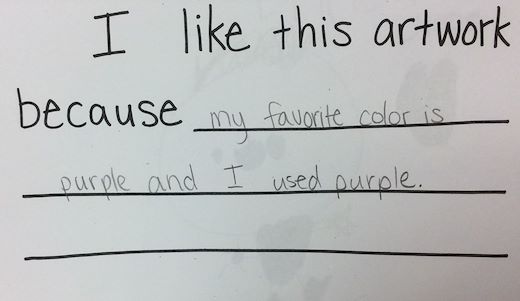 I like this artwork
because my favorite color is
purple and I used purple.